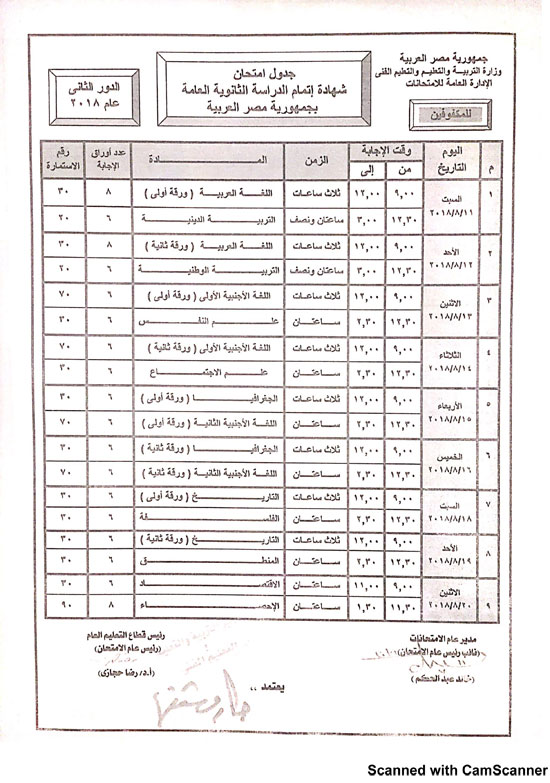 جمهورية مصر العربية
وزارة التربيـة والتعليـم والتعليم الفنى
الإدارة العامة للامتحانات
للمكفوفين
جدول امتحان
شهادة إتمام الدراسة الثانوية العامة
بجمهورية مصر العربية
الدور الثانى
عام ٢٠١٨
م اليوم التاريخ وقت الإجابة من إلى الزمن المــادة عدد أوراق الإجابة رقم الاستمارة
١ السبت ٢٠١٨/٨/١١ ٩,٠٠ ١٢,٠٠ ثلاث ساعات اللغة العربيـة ( ورقة أولى ) ٨ ٣٠
١٢,٣٠ ٣,٠٠ ساعتان ونصف التربيـة الدينيـة ٦ ٢٠
٢ الأحد ٢٠١٨/٨/١٢ ٩,٠٠ ١٢,٠٠ ثلاث ساعات اللغة العربيـة ( ورقة ثانية ) ٨ ٣٠
١٢,٣٠ ٣,٠٠ ساعتان ونصف التربيـة الوطنيـة ٦ ٢٠
٣ الاثنين ٢٠١٨/٨/١٣ ٩,٠٠ ١٢,٠٠ ثلاث ساعات اللغة الأجنبية الأولى ( ورقة أولى ) ٦ ٧٠
١٢,٣٠ ٢,٣٠ ساعتـان علـم النفـس ٦ ٣٠
٤ الثلاثاء ٢٠١٨/٨/١٤ ٩,٠٠ ١٢,٠٠ ثلاث ساعات اللغة الأجنبية الأولى ( ورقة ثانية ) ٦ ٧٠
١٢,٣٠ ٢,٣٠ ساعتـان علـم الاجتمـاع ٦ ٣٠
٥ الأربعاء ٢٠١٨/٨/١٥ ٩,٠٠ ١٢,٠٠ ثلاث ساعات الجغرافيـا ( ورقة أولى ) ٦ ٣٠
١٢,٣٠ ٢,٣٠ ساعتـان اللغة الأجنبية الثانية ( ورقة أولى ) ٦ ٧٠
٦ الخميس ٢٠١٨/٨/١٦ ٩,٠٠ ١٢,٠٠ ثلاث ساعات الجغرافيـا ( ورقة ثانية ) ٦ ٣٠
١٢,٣٠ ٢,٣٠ ساعتـان اللغة الأجنبية الثانية ( ورقة ثانية ) ٦ ٧٠
٧ السبت ٢٠١٨/٨/١٨ ٩,٠٠ ١٢,٠٠ ثلاث ساعات التاريـخ ( ورقة أولى ) ٦ ٣٠
١٢,٣٠ ٢,٣٠ ساعتـان الفلسـفة ٦ ٣٠
٨ الأحد ٢٠١٨/٨/١٩ ٩,٠٠ ١٢,٠٠ ثلاث ساعات التاريـخ ( ورقة ثانية ) ٦ ٣٠
١٢,٣٠ ٢,٣٠ ساعتـان المنطـق ٦ ٣٠
٩ الاثنين ٢٠١٨/٨/٢٠ ٩,٠٠ ١١,٠٠ ساعتـان الاقتصـاد ٦ ٣٠
١١,٣٠ ١,٣٠ ساعتـان الإحصـاء ٨ ٩٠
مدير عام الامتحانات
(نائب رئيس عام الامتحان)
(خالد عبدالحكم)
رئيس قطاع التعليم العام
(رئيس عام الامتحان)
(أ.د/ رضا حجازى)
يعتمد ،،
Scanned with CamScanner